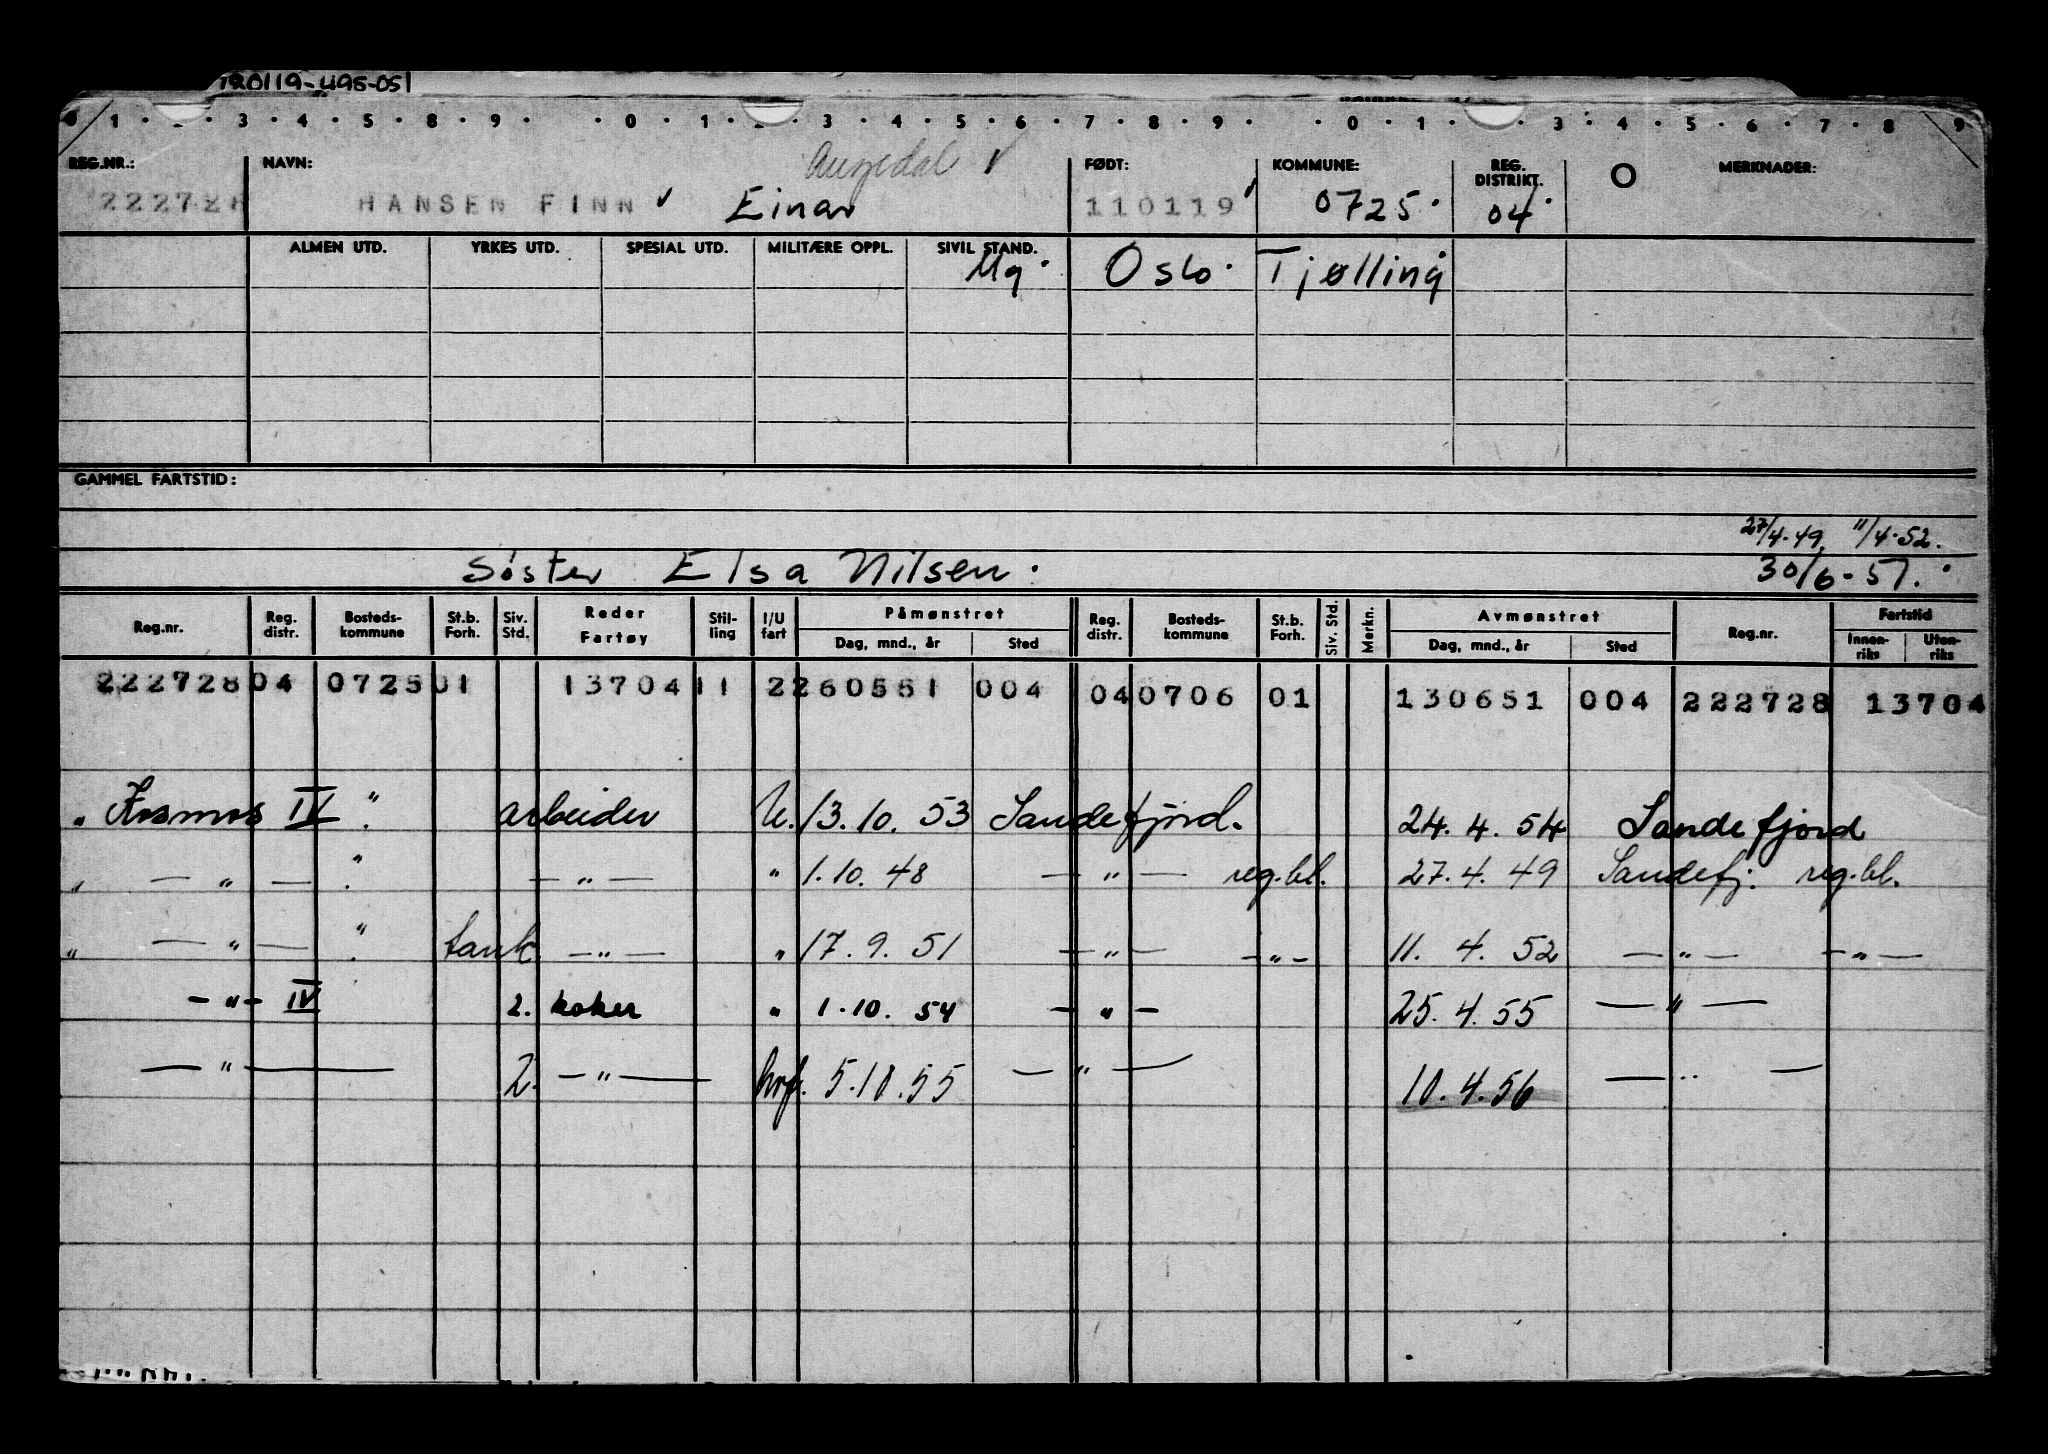 0 1 · 2 · 3 · 4 · 5 · 8 · 9 · · 0 · 1 · 2 · 3 · 4 · 5 · 6 · 7 · 8 · 9 · · 0 · 1 · · 3 · 4 · 5 · 6 · 7 · 8 9
REG.NR.: NAVN: FØDT: KOMMUNE: REG. DISTRIKT. O MERKNADER:
222728 HANSEN FINN Einar 110119 0725. 04.
ALMEN UTD. YRKES UTD. SPESIAL UTD. MILITÆRE OPPL. SIVIL STAND.
Ug. Oslo. Tjølling
GAMMEL FARTSTID:
27/4-49, 11/4-52.
Søster Elsa Nilsen. 30/6-51.
Reg.nr. Reg. distr. Bosteds-kommune St.b. Forh. Siv. Std. Reder Fartøy Stil-ling I/U fart Påmønstret Reg. distr. Bosteds-kommune St.b. Forh. Siv. Std. Merkn. Avmønstret Reg.nr. Fartstid
Dag, mnd., år Sted Dag, mnd., år Sted Innen-riks Uten-riks
222728 04 0725 01 13704 11 2 260551 004 04 0706 01 130651 004 222728 13704
" Kosmos IV " arbeider U. 13.10.53 Sandefjord. 24.4.54 Sandefjord
" — " — " — " — " 1.10.48 — " — reg.bl. 27.4.49 Sandefj. reg.bl.
" — " — " tank — " — " 17.9.51 — " — — " — 11.4.52 — " — — " —
— " — IV 2. koker " 1.10.54 — " — 25.4.55 — " —
— " — 2. — " — hvf. 5.10.55 — " — 10.4.56 — " —